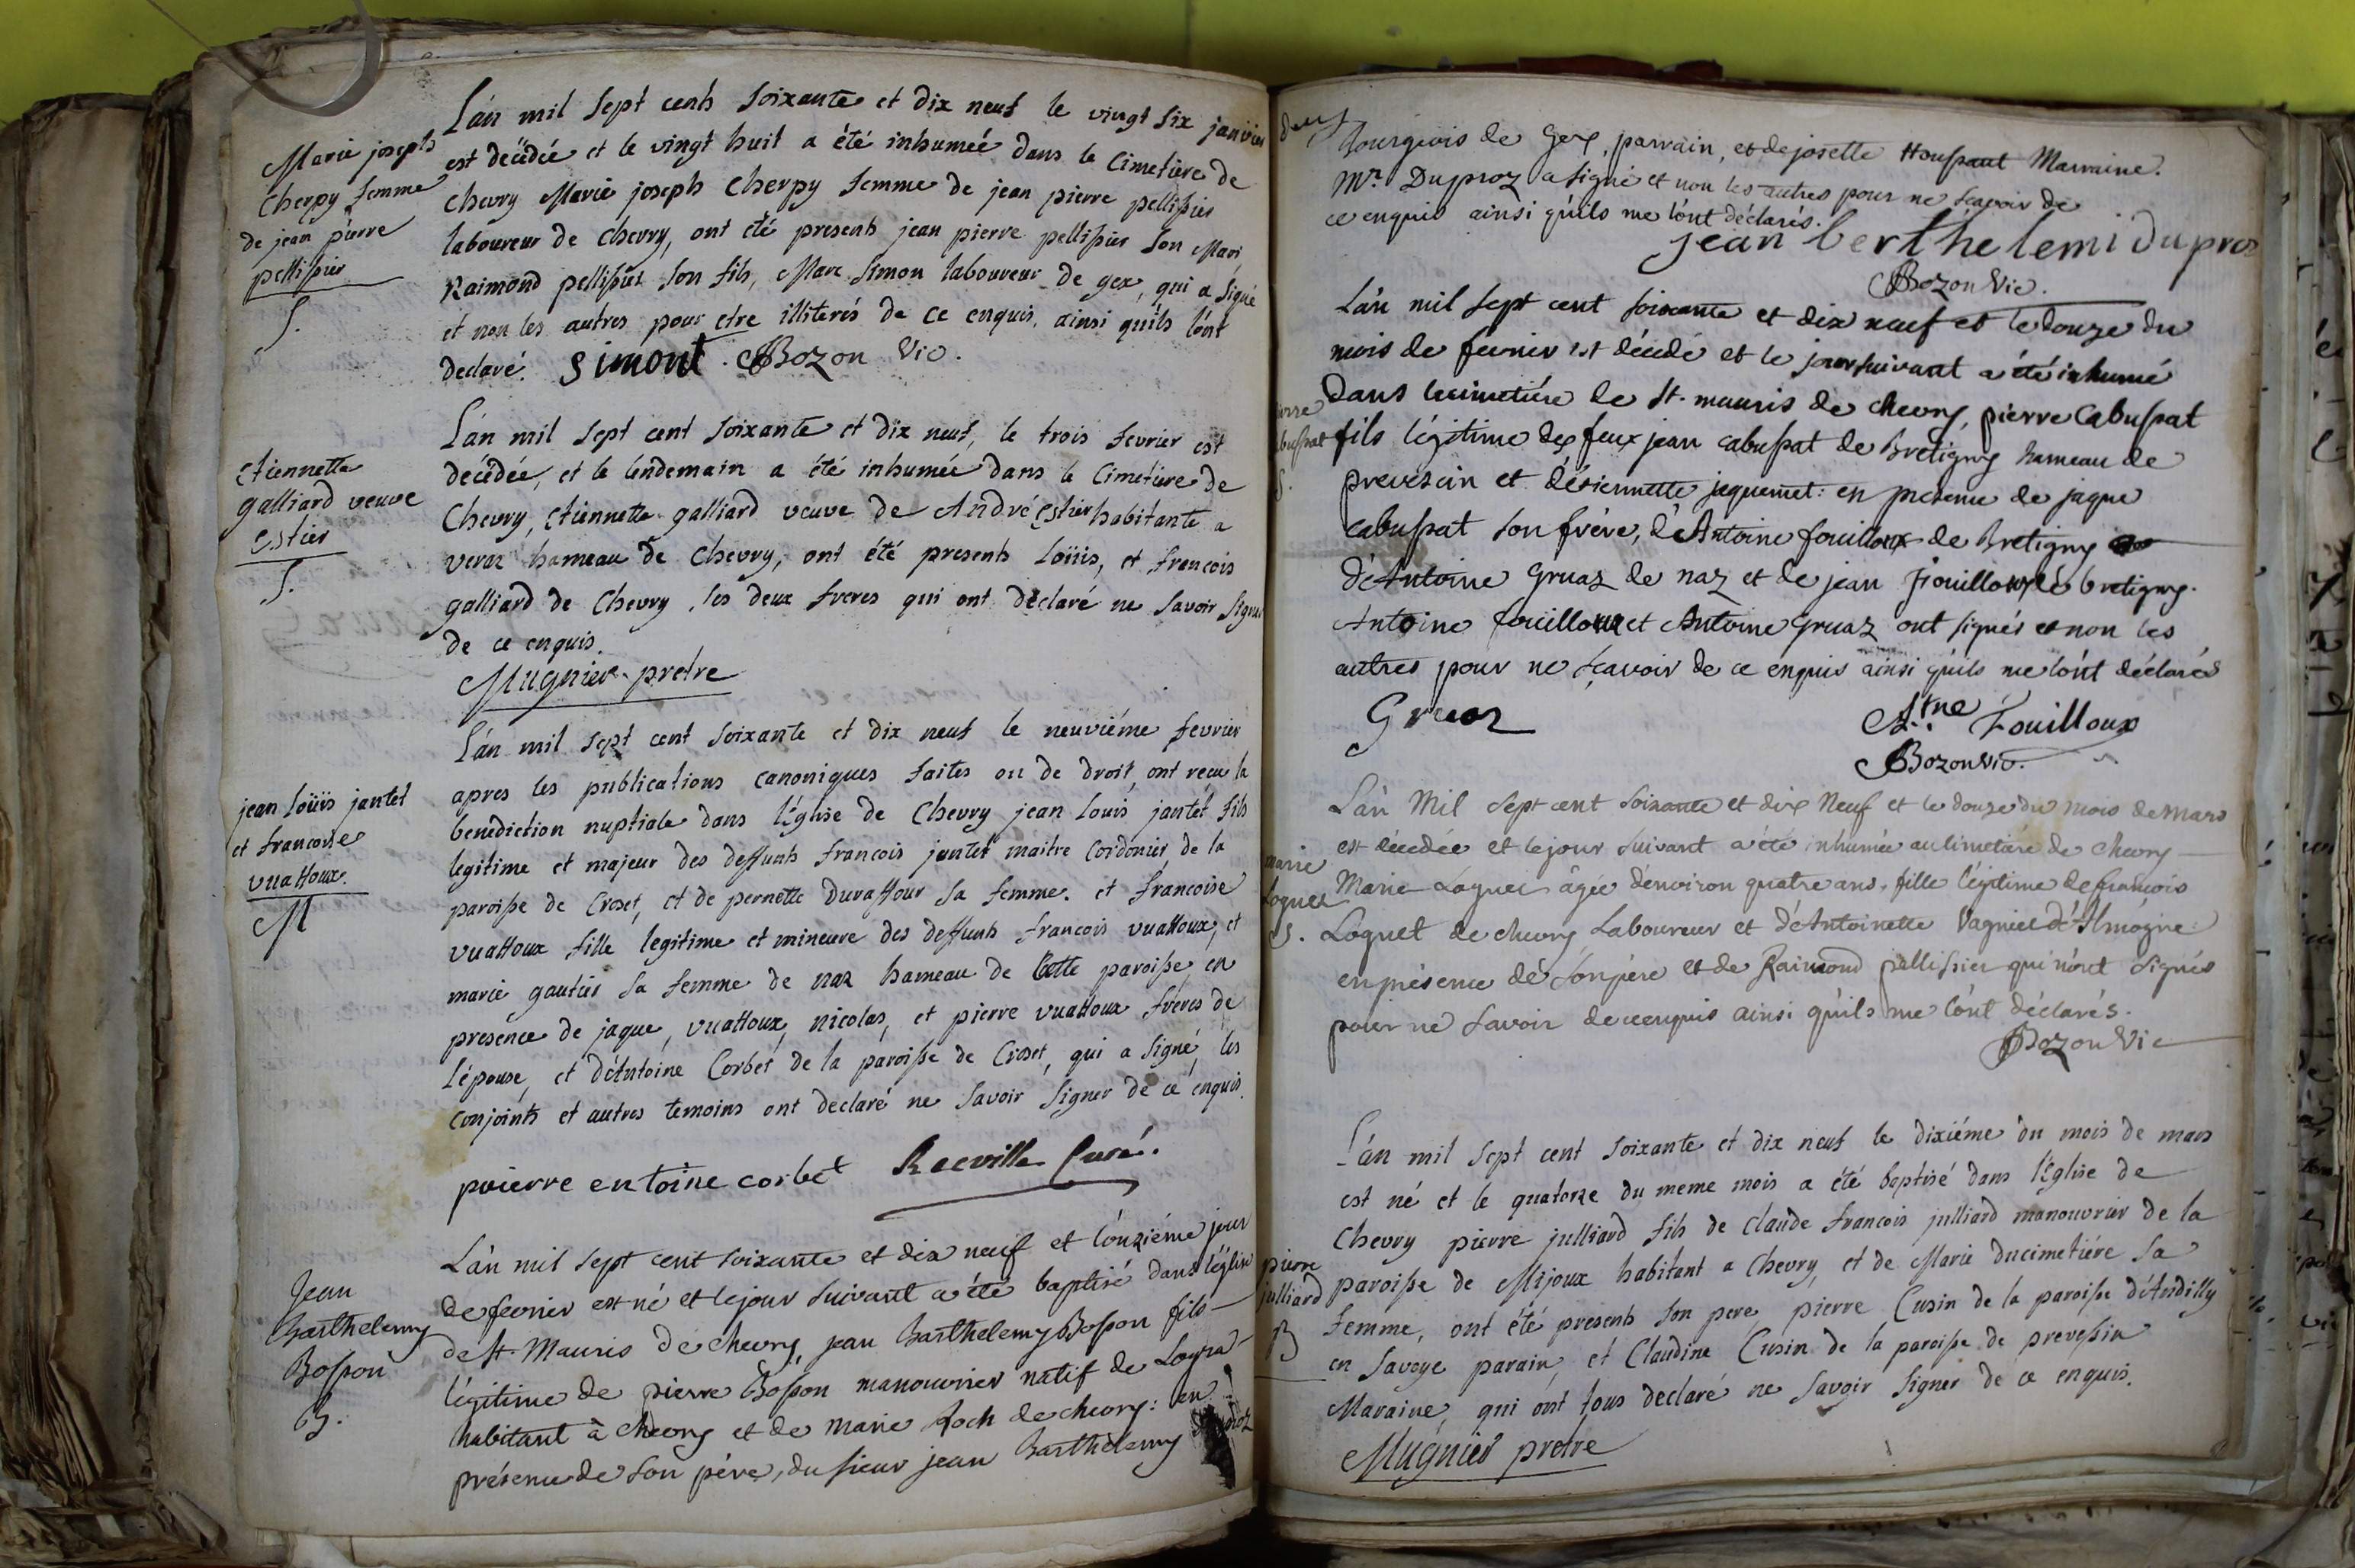 Marie joseph
Cherpy femme
de jean pierre
pellissier
S.
L'an mil sept cents soixante et dix neuf le vingt six janvier
est decedée et le vingt huit a été inhumée dans le Cimetiere de
Chevry Marie joseph Cherpy femme de jean pierre pellissier
laboureur de chevry, ont été presents jean pierre pellissier son Mari
Raimond pellissier son fils, Marc Simon laboureur de gex, qui a signé
et non les autres pour etre illiterés de ce enquis, ainsi quils l'ont
declaré. simont. Bozon Vic.
Etiennette
galliard veuve
Estier
S.
L'an mil sept cent soixante et dix neuf, le trois fevrier est
decédée, et le lendemain a été inhumée dans le Cimetiere de
Chevry, Etiennette galliard veuve de André Estier habitante a
veraz hameau de Chevry, ont été presents Loüis, et francois
galliard de Chevry, les deux freres qui ont déclaré ne savoir signer
de ce enquis.
Mugnier pretre
jean Loüis jantet
et francoise
vuattoux.
M
L'an mil sept cent soixante et dix neuf le neuviéme fevrier
apres les publications canoniques faites ou de droit, ont recu la
benediction nuptiale dans l'Eglise de Chevry jean Louis jantet fils
legitime et majeur des deffunts francois jantet maitre Cordonier, de la
paroisse de Croset, et de pernette duraffour sa femme. et francoise
vuattoux fille legitime et mineure des deffunts francois vuattoux, et
marie gautier sa femme de naz hameau de Cette paroisse, en
presence de jaque, vuattoux, nicolas, et pierre vuattoux freres de
l'épouse, et d'Antoine Corbet de la paroisse de Croset, qui a signé, les
conjoints et autres temoins ont declaré ne savoir signer de ce enquis.
puierre entoine corbet Reeville Curé.
Jean
Barthelemy
Bosson
B.
L'an mil sept cent soixante et dix neuf et l'onziéme jour
de fevrier est né et le jour suivant a été baptisé dans l'église
de St. Mauris de chevry, jean Barthelemy Bosson fils
légitime de pierre Bosson manouvrier natif de Logra
habitant à chevry et de marie Roch de chevry: en
présence de son pére, du sieur jean Barthélemy
Bourgeois de Gex, parrain, et de josette Marraine.
Mr. Duproz a signé et non les autres pour ne sçavoir de
ce enquis ainsi qu'ils me l'ont déclarés.
jean berthelemi dupros
Bozon Vic.
L'an mil sept cent soixante et dix neuf et le douze du
mois de fevrier est décedé et le jour suivant a été inhumé
dans le cimetiére de St. mauris de chevry, pierre Cabussat
fils légitime des feux jean cabussat de Bretigny hameau de
prevessin et d'étiennette jequemet: en presence de jaque
cabussat son frére, d'Antoine fouilloux de Bretigny
d'Antoine Gruaz de naz et de jean fouilloux de bretigny.
Antoine fouilloux et Antoine Gruaz ont signés et non les
autres pour ne sçavoir de ce enquis ainsi qu'ils me l'ont déclarés
Gruaz Atne Fouilloux
Bozon Vic.
marie
Loquet
S.
L'an Mil sept cent soixante et dix Neuf et le douze du mois de mars
est décedée et le jour suivant a été inhumée au cimetiére de chevry
Marie Loquet âgée d'environ quatre ans, fille légitime de francois
Loquet de chevry Laboureur et d'Antoinette Vagnier
en présence de son pére et de Raimond pellissier qui n'ont signés
pour ne savoir de ce enquis ainsi qu'ils me l'ont déclarés.
Bozon Vic
pierre
julliard
B
L'an mil sept cent soixante et dix neuf le dixiéme du mois de mars
est né et le quatorze du meme mois a été baptisé dans l'Eglise de
Chevry pierre julliard fils de claude francois julliard manouvrier de la
paroisse de Mijoux habitant a Chevry, et de Marie ducimetiére sa
femme, ont été presents son pere, pierre Cusin de la paroisse d'Andilly
en savoye parain, et Claudine Cusin de la paroisse de prevessin
Maraine, qui ont tous declaré ne savoir signer de ce enquis.
Mugnier pretre